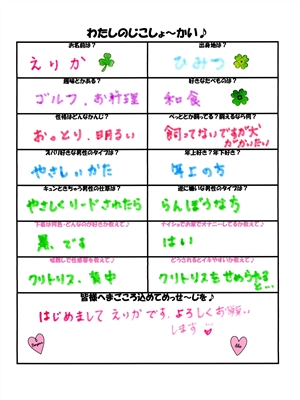 わたしのじこしょ〜かい♪
お名前は？
出身地は？
えりか
ひみつ
趣味とかある？
好きなたべものは？
ゴルフ、お料理
和食
性格はどんなかんじ？
ペっとか飼ってる？飼えるなら何？
おっとり、明るい
飼ってないですが犬
がかいたい
ズバリ好みな男性のタイプは？
年上好き？年下好き？
やさしいかた
年上の方
キュンときちゃう男性の仕草は？
逆に嫌いな男性のタイプは？
やさしくリードされたら
らんぼうな方
下着は何色・どんなのが好きか教えて♪
ナイショでお家でオナニーしてるか教えて♪
黒、です
はい
性感帯を教えて♪
どうされるとイキやすいか教えて♪
クリトリス、背中
クリトリスをせめられる
と…
皆様へまごころ込めてめっせ〜じを♪
はじめまして えりか です、よろしくお願い
します